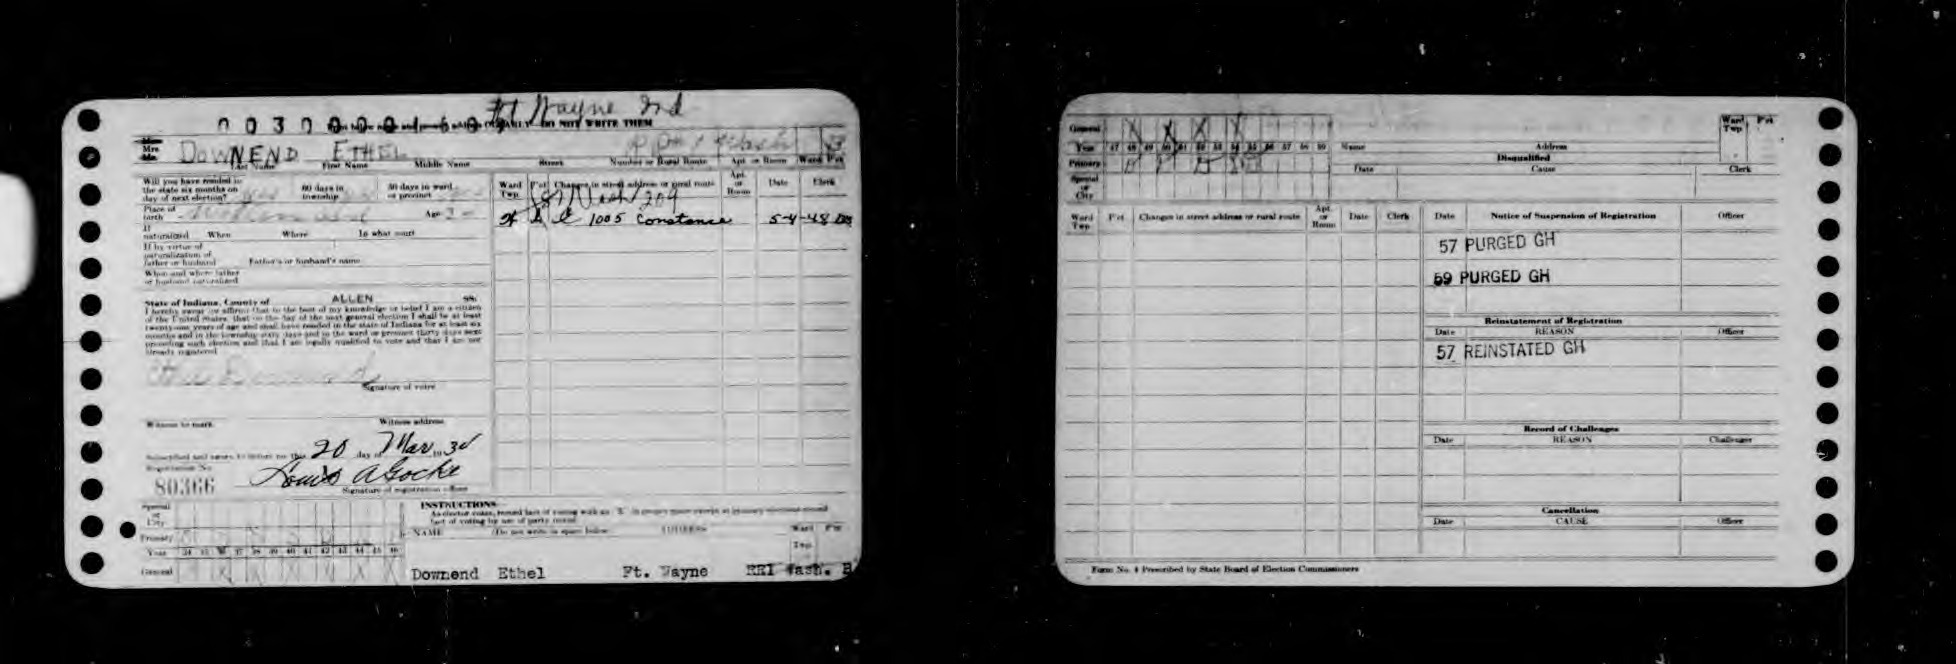 Ft Wayne Ind
DO NOT WRITE THEM
Mrs
DOWNEND ETHEL
Last Name First Name Middle Name Street Number or Rural Route Apt. or Room Ward Pct
Will you have resided in
the state six months on
day of next election?
60 days in
township
30 days in ward
or precinct
Place of
birth
Age
If
naturalized When Where In what court
If by virtue of
naturalization of
father or husband Father's or husband's name
When and where father
or husband naturalized
State of Indiana, County of ALLEN ss:
I hereby swear or affirm that to the best of my knowledge or belief I am a citizen
of the United States, that on the day of the next general election I shall be at least
twenty-one years of age and shall have resided in the state of Indiana for at least six
months and in the township sixty days and in the ward or precinct thirty days next
preceding such election and that I am legally qualified to vote and that I am not
already registered
Signature of voter
Witness to mark Witness address
Subscribed and sworn to before me this 20 day of Mar 19
Registration No.
80366
Louis A Gocke
Signature of registration officer
Ward
Twp.
Pct
Changes in street address or rural route
Apt.
or
Room
Date
Clerk
Wash 209
1005 Constance 5-4-48
Special
or
City
Primary
Year 34 35 36 37 38 39 40 41 42 43 44 45 46
General X X X X X X
INSTRUCTIONS
NAME (Do not write in space below) ADDRESS Ward Pct
Twp.
Downend Ethel Ft. Wayne RR1 Wash. B
General X X X X
Year 47 48 49 50 51 52 53 54 55 56 57 58 59
Primary
Special
or
City
Name Address
Disqualified
Date Cause Clerk
Ward
Twp
Pct
Ward
Twp
Pct
Changes in street address or rural route
Apt.
or
Room
Date
Clerk
Date Notice of Suspension of Registration Officer
57 PURGED GH
59 PURGED GH
Reinstatement of Registration
Date REASON Officer
57 REINSTATED GH
Record of Challenges
Date REASON Challenger
Cancellation
Date CAUSE Officer
Form No. 4 Prescribed by State Board of Election Commissioners